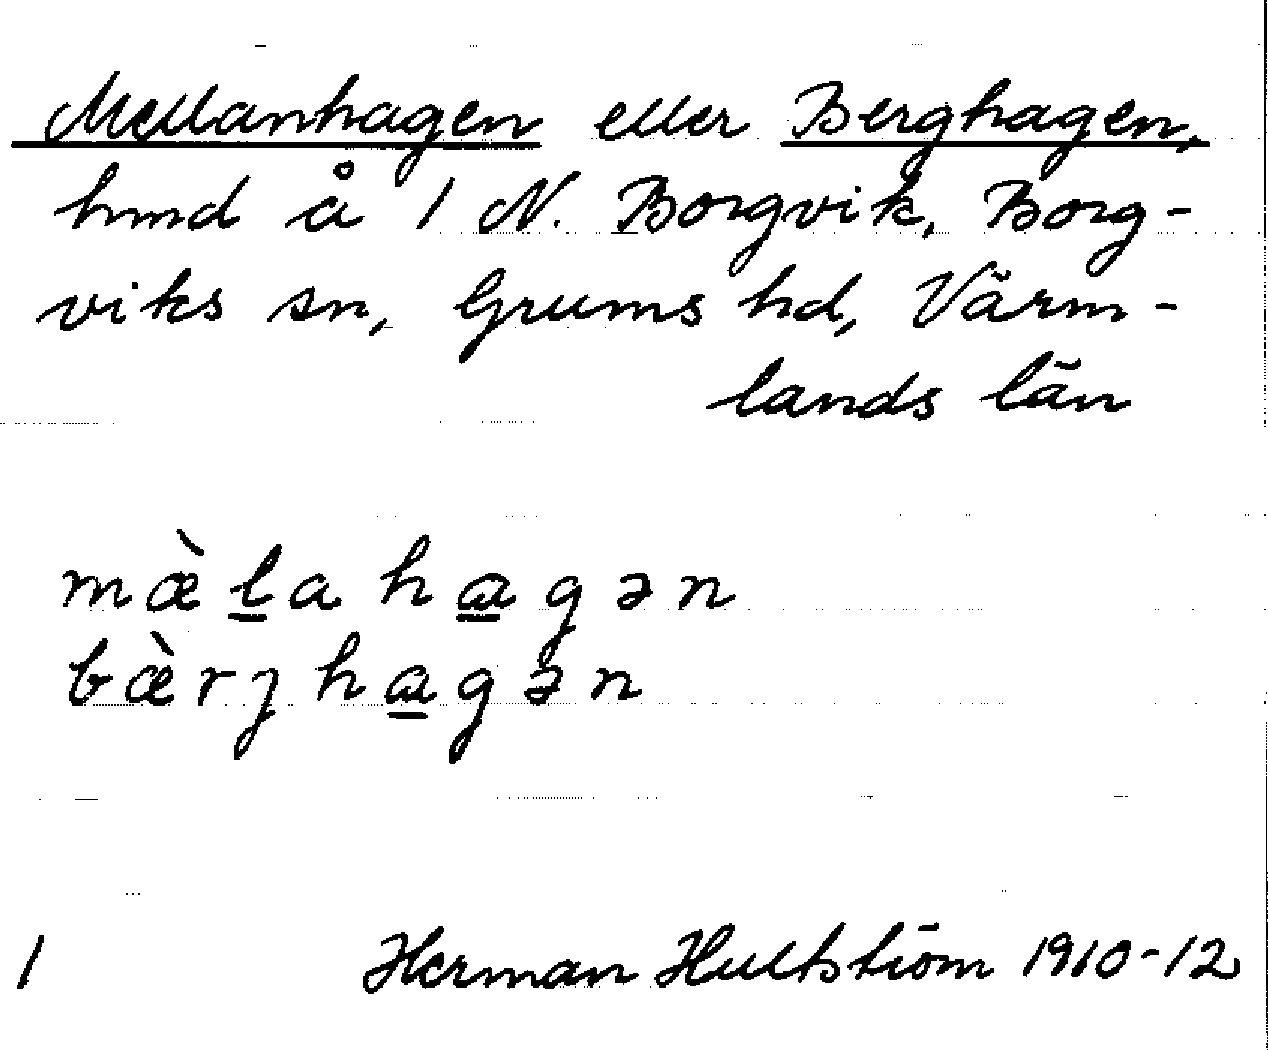 Mellanhagen eller Berghagen,
hmd å 1 N. Borgvik, Borg-
viks sn, Grums hd, Värm-
lands län
mæ̀l̲ah a̲gən
bæ̀rjha̲gən
1 Herman Hultström 1910-12